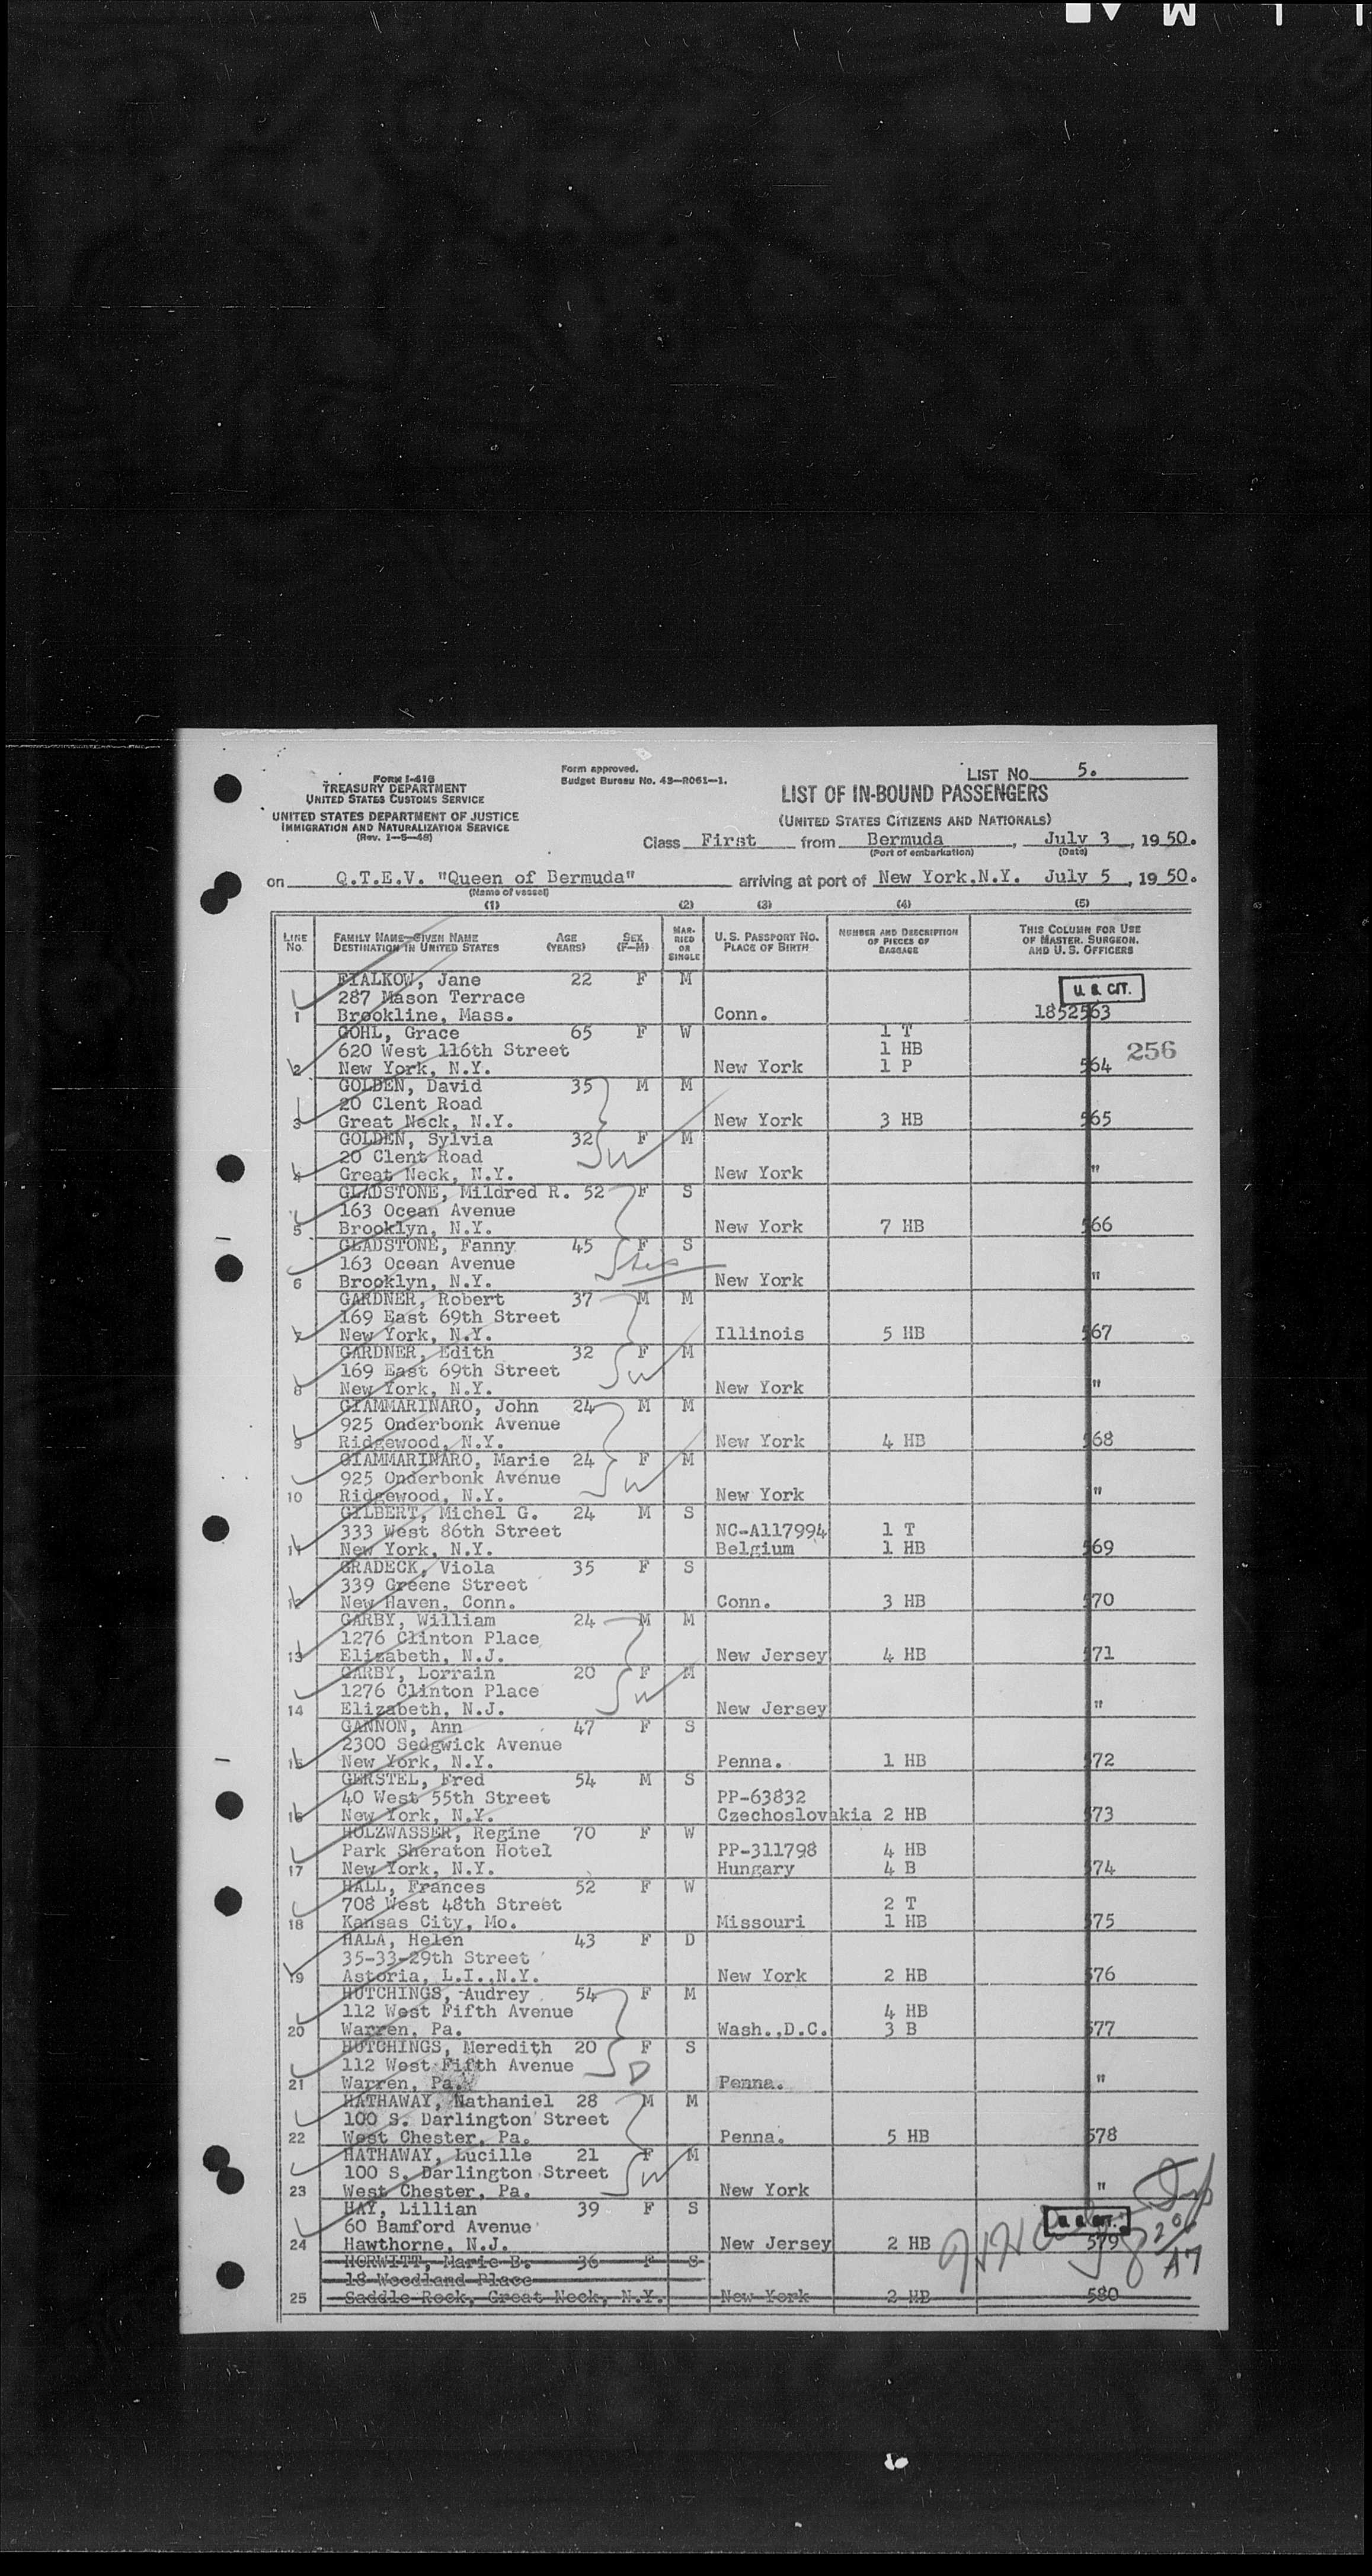 Form I-416
TREASURY DEPARTMENT
UNITED STATES CUSTOMS SERVICE
UNITED STATES DEPARTMENT OF JUSTICE
IMMIGRATION AND NATURALIZATION SERVICE
(Rev. 1-5-48)
Form approved.
Budget Bureau No. 43-R061-1.
LIST NO. 5.
LIST OF IN-BOUND PASSENGERS
(UNITED STATES CITIZENS AND NATIONALS)
Class First from Bermuda, July 3, 1950.
(Port of embarkation) (Date)
on Q.T.E.V. "Queen of Bermuda" arriving at port of New York.N.Y. July 5, 1950.
(Name of vessel)
(1) (2) (3) (4) (5)
LINE NO. FAMILY NAME—GIVEN NAME DESTINATION IN UNITED STATES AGE (YEARS) SEX (F—M) MARRIED OR SINGLE U. S. PASSPORT NO. PLACE OF BIRTH NUMBER AND DESCRIPTION OF PIECES OF BAGGAGE THIS COLUMN FOR USE OF MASTER, SURGEON, AND U. S. OFFICERS
FIALKOW, Jane 22 F M
287 Mason Terrace U. S. CIT.
1 Brookline, Mass. Conn. 1852563
GOHL, Grace 65 F W 1 T
620 West 116th Street 1 HB 256
2 New York, N.Y. New York 1 P 564
GOLDEN, David 35 M M
20 Clent Road
3 Great Neck, N.Y. New York 3 HB 565
GOLDEN, Sylvia 32 F M
20 Clent Road W
4 Great Neck, N.Y. New York "
GLADSTONE, Mildred R. 52 F S
163 Ocean Avenue
5 Brooklyn, N.Y. New York 7 HB 566
GLADSTONE, Fanny 45 F S
163 Ocean Avenue
6 Brooklyn, N.Y. New York "
GARDNER, Robert 37 M M
169 East 69th Street
7 New York, N.Y. Illinois 5 HB 567
GARDNER, Edith 32 F M
169 East 69th Street W
8 New York, N.Y. New York "
GIAMMARINARO, John 24 M M
925 Onderbonk Avenue
9 Ridgewood, N.Y. New York 4 HB 568
GIAMMARINARO, Marie 24 F M
925 Onderbonk Avenue W
10 Ridgewood, N.Y. New York "
GILBERT, Michel G. 24 M S
333 West 86th Street NC-A117994 1 T
11 New York, N.Y. Belgium 1 HB 569
GRADECK, Viola 35 F S
339 Greene Street
12 New Haven, Conn. Conn. 3 HB 570
GARBY, William 24 M M
1276 Clinton Place
13 Elizabeth, N.J. New Jersey 4 HB 571
GARBY, Lorrain 20 F M
1276 Clinton Place W
14 Elizabeth, N.J. New Jersey "
GANNON, Ann 47 F S
2300 Sedgwick Avenue
15 New York, N.Y. Penna. 1 HB 572
GERSTEL, Fred 54 M S
40 West 55th Street PP-63832
16 New York, N.Y. Czechoslovakia 2 HB 573
HOLZWASSER, Regine 70 F W
Park Sheraton Hotel PP-311798 4 HB
17 New York, N.Y. Hungary 4 B 574
HALL, Frances 52 F W
708 West 48th Street 2 T
18 Kansas City, Mo. Missouri 1 HB 575
HALA, Helen 43 F D
35-33-29th Street
19 Astoria, L.I.,N.Y. New York 2 HB 576
HUTCHINGS, Audrey 54 F M
112 West Fifth Avenue 4 HB
20 Warren, Pa. Wash.,D.C. 3 B 577
HUTCHINGS, Meredith 20 F S
112 West Fifth Avenue D
21 Warren, Pa. Penna. "
HATHAWAY, Nathaniel 28 M M
100 S. Darlington Street
22 West Chester, Pa. Penna. 5 HB 578
HATHAWAY, Lucille 21 F M
100 S. Darlington Street W
23 West Chester, Pa. New York "
HAY, Lillian 39 F S
60 Bamford Avenue U. S. CIT.
24 Hawthorne, N.J. New Jersey 2 HB 579
HORWITT, Marie B. 36 F S
18 Woodland Place
25 Saddle Rock, Great Neck, N.Y. New York 2 HB 580